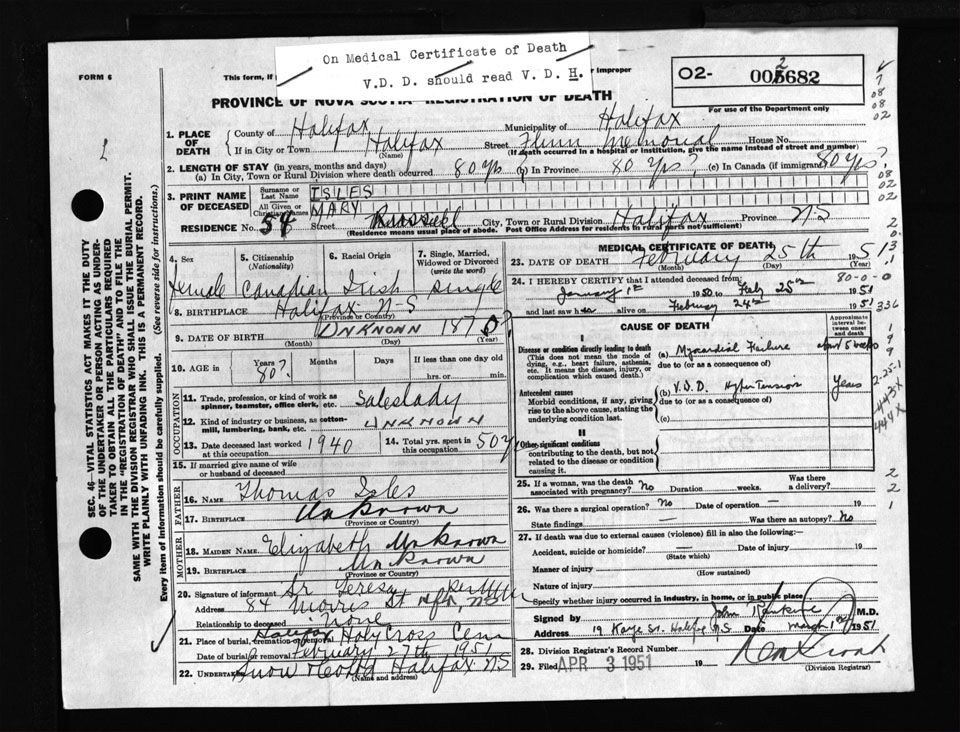 On Medical Certificate of Death
V.D.D. should read V.D.H.
FORM 6
This form, if
or improper
O2-
005682
2
For use of the Department only
PROVINCE OF NOVA SCOTIA REGISTRATION OF DEATH
1. PLACE OF DEATH
County of Halifax
Municipality of Halifax
If in City or Town Halifax (Name)
Street Memorial House No.
(If death occurred in a hospital or institution, give the name instead of street and number)
2. LENGTH OF STAY (in years, months and days)
(a) In City, Town or Rural Division where death occurred 80 yrs (b) In Province 80 yrs? (c) In Canada (if immigrant) 80 yrs?
3. PRINT NAME OF DECEASED
Surname or Last Name ISLES
All Given or Christian Names MARY
RESIDENCE No. 54 Street Russell City, Town or Rural Division Halifax Province NS
(Residence means usual place of abode. Post Office Address for residents in rural parts not sufficient)
4. Sex
female
5. Citizenship (Nationality)
Canadian
6. Racial Origin
Irish
7. Single, Married, Widowed or Divorced (write the word)
single
8. BIRTHPLACE Halifax N-S
(Province or Country)
9. DATE OF BIRTH UNKNOWN 1870
(Month) (Day)
10. AGE in Years 80? Months Days If less than one day old
hrs. or min.
OCCUPATION
11. Trade, profession, or kind of work as spinner, teamster, office clerk, etc. Saleslady
12. Kind of industry or business, as cotton-mill, lumbering, bank, etc. UNKNOWN
13. Date deceased last worked at this occupation 1940
14. Total yrs. spent in this occupation 50 y
15. If married give name of wife or husband of deceased
FATHER
16. NAME Thomas Isles
17. BIRTHPLACE Unknown
(Province or Country)
MOTHER
18. MAIDEN NAME Elizabeth Unknown
19. BIRTHPLACE Unknown
(Province or Country)
20. Signature of informant Sr Teresa
Address 84 Morris St Hfx, NS
Relationship to deceased none
21. Place of burial, cremation or removal Halifax Holy Cross Cem
Date of burial or removal February 27th 1951
22. UNDERTAKER Snow Halifax NS
(Name and address)
MEDICAL CERTIFICATE OF DEATH
23. DATE OF DEATH February 25th 1951
(Month) (Day)
24. I HEREBY CERTIFY that I attended deceased from: 80-0-0
January 1st 1950 to Feb 25th 1951
and last saw her alive on February 24th 1951
CAUSE OF DEATH
Approximate interval between onset and death
I
Disease or condition directly leading to death
(This does not mean the mode of dying, e.g., heart failure, asthenia, etc. It means the disease, injury, or complication which caused death.)
(a) Myocardial Failure
due to (or as a consequence of)
Antecedent causes
Morbid conditions, if any, giving rise to the above cause, stating the underlying condition last.
(b) V.D.D. Hypertension Years
due to (or as a consequence of)
(c)
II
Other significant conditions contributing to the death, but not related to the disease or condition causing it
25. If a woman, was the death associated with pregnancy? No Duration weeks. Was there a delivery?
26. Was there surgical operation? No Date of operation — 19
State findings — Was there an autopsy? No
27. If death was due to external causes (violence) fill in also the following:—
Accident, suicide or homicide? — Date of injury 19
(State which)
Manner of injury
(How sustained)
Nature of injury
Specify whether injury occurred in industry, in home, or in public place.
Signed by John Rankine M.D.
Address 19 Kaye St. Halifax NS Date March 1st 1951
28. Division Registrar's Record Number
29. Filed APR 3 1951 19
(Division Registrar)
SEC. 46—VITAL STATISTICS ACT MAKES IT THE DUTY
OF THE UNDERTAKER OR PERSON ACTING AS UNDER-
TAKER TO OBTAIN ALL THE PARTICULARS REQUIRED
IN THE "REGISTRATION OF DEATH" AND TO FILE THE
SAME WITH THE DIVISION REGISTRAR WHO SHALL ISSUE THE BURIAL PERMIT.
WRITE PLAINLY WITH UNFADING INK. THIS IS A PERMANENT RECORD.
Every item of information should be carefully supplied. (See reverse side for instructions.)
7
08
08
02
08
02
02
336
2-25-1
443X
444X
2
2
1